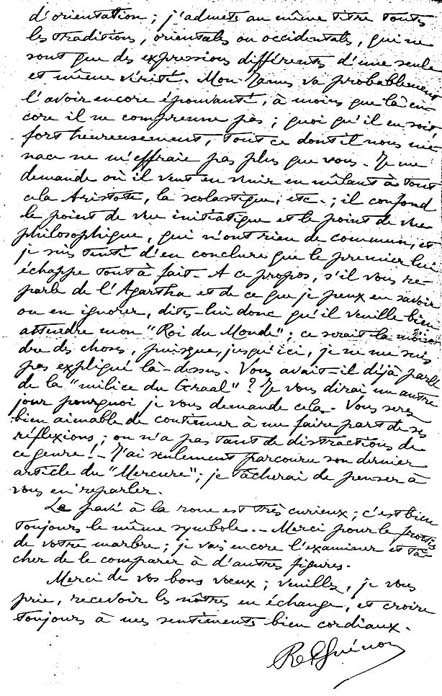 d'orientation ; j'admets au même titre toutes
les traditions, orientales ou occidentales, qui ne
sont que des expressions différentes d'une seule
et même vérité. Mon va probablement
l'avoir encore épouvanté, à moins que là en-
core il ne comprenne pas ; quoi qu'il en soit
fort heureusement, tout ce dont il nous me-
nace ne m'effraie pas plus que vous. Je me
demande où il veut en venir en mêlant à tout
cela Aristote, la scolastique, etc. ; il confond
le point de vue initiatique et le point de vue
philosophique, qui n'ont rien de commun, et
je suis tenté d'en conclure que le premier lui
échappe tout à fait. A ce propos, s'il vous re-
parle de l'Agartha et de ce que je peux en savoir
ou en ignorer, dites-lui donc qu'il veuille bien
attendre mon "Roi du Monde", ce serait la moin-
dre des choses, puisque, jusqu'ici, je ne me suis
pas expliqué là-dessus. Vous avait-il déjà parlé
de la "milice du Graal" ? Je vous dirai un autre
jour pourquoi je vous demande cela. Vous serez
bien aimable de continuer à me faire part de ses
réflexions ; on n'a pas tant de distractions de
ce genre ! - J'ai seulement parcouru son dernier
article du "Mercure" ; je tâcherai de penser à
vous en reparler.
Le pavé à la roue est très curieux ; c'est bien
toujours le même symbole.. Merci pour le frottis
de votre marbre ; je vais encore l'examiner et tâ-
cher de le comparer à d'autres figures.
Merci de vos bons vœux ; veuillez, je vous
prie, recevoir les nôtres en échange, et croire
toujours à mes sentiments bien cordiaux.
R Guénon